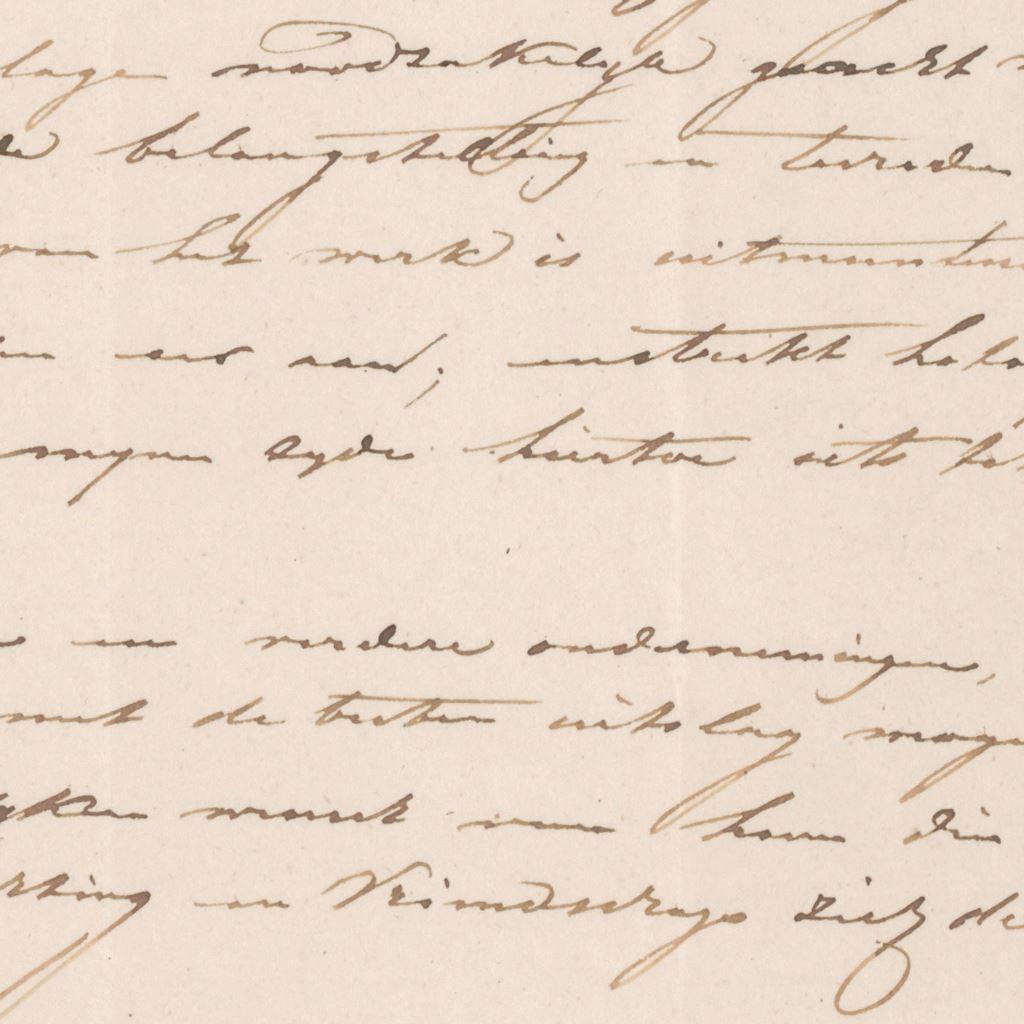 lage noodzakelyk geacht
de belangstelling en tevreden
van het werk is uitmunten
en ons aan; instrekt
mynen zyde hiertoe iets
en verdere ondernemingen,
met de besten uitslag moge
yken wensch van hem die
king en Vriendschap zich de